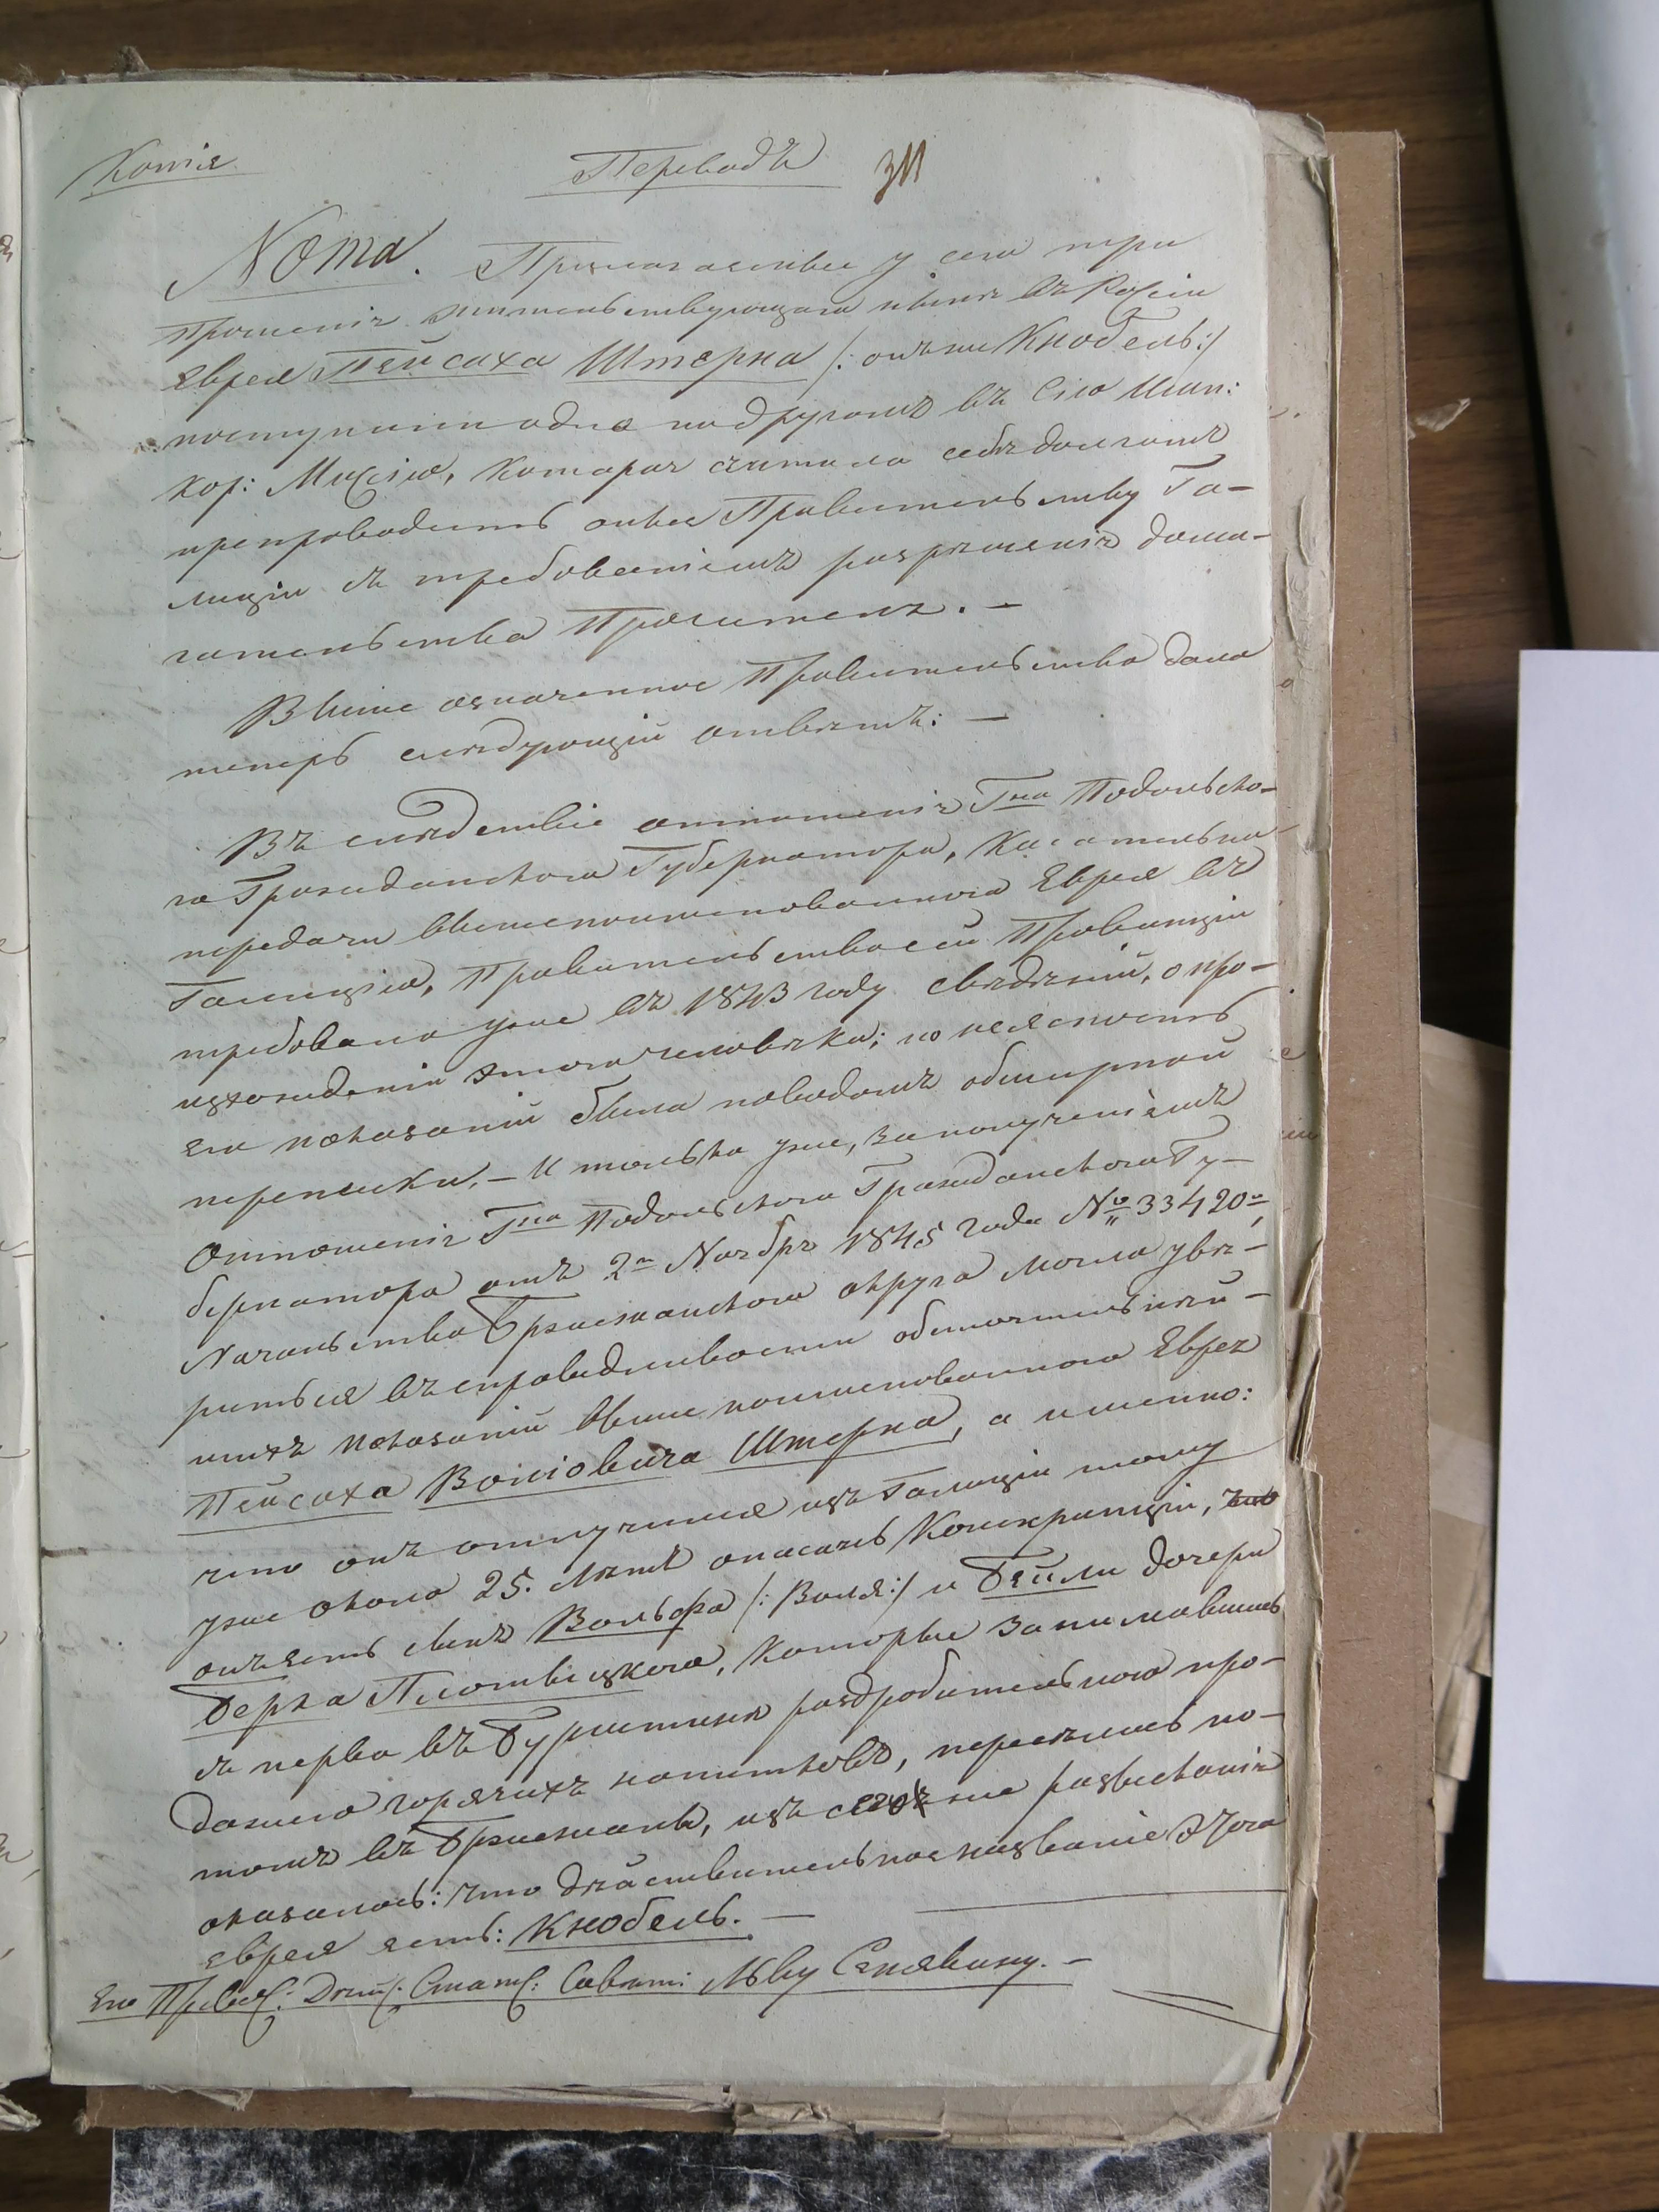 Копія
Переводъ 311
Nота. Прилагаемые у сего три
прошенія жительствующаго нынѣ въ Росіи
Еврея Пейсаха Штерна /: онъ ли Кнобель :/
поступили одна по другомъ въ Сію Имп:
Кор: Мисію, Которая считала себѣ долгомъ
препроводить оные Правительству Га-
лиціи съ требованіемъ разрѣшенія дома-
гательства Просителя. —
Выше означенное Правительство дало
теперь слѣдующій отвѣтъ: —
Въ слѣдствіе отношенія Гна Подольско-
го Гражданского Губернатора, Касательно
передачи вышепоименованного Еврея въ
Галицію, Правительство сей Провинціи
требовало уже въ 1843 году свѣдѣній, о про-
изхожденіи этого человѣка; но неясность
его показаній была поводомъ обширной
переписки. — И только уже, за полученіемъ
Отношенія Гна Подольского Гражданского Гу-
бернатора отъ 2го Ноября 1845 года № 33420о,
Начальство Бржежанского округа могло увѣ-
риться въ справедливости обстоятельнѣй-
шихъ показаній выше поименованного Еврея
Пейсаха Волiовича Штерна, а именно:
что онъ отлучился изъ Галиціи тому
уже около 25. лѣтъ опасаясь Конскрипціи, что
онъ есть сынъ Вольфа /: Воля :/ и Бейли дочери
Берка Плотвицкого, Которые занимавшись
съ перва въ Бурштынѣ раздробительного про-
дажею горячихъ напитковъ, переѣлись по-
томъ въ Бржежаны, изъ сего же развѣсканія
оказалось: что дѣйствительное названіе этого
еврея есть: Кнобель. —
Его Превосх: Дѣйс: Статс: Совѣт: Льву Сенявину. —